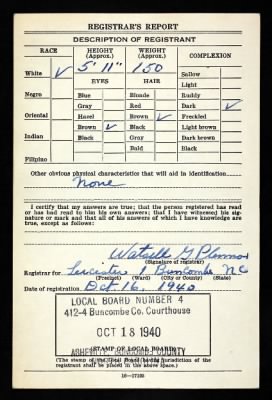 REGISTRAR'S REPORT
DESCRIPTION OF REGISTRANT
RACE HEIGHT (Approx.) WEIGHT (Approx.) COMPLEXION
White ✓ 5' 11" 150 Sallow
EYES HAIR Light
Negro Blue Blonde Ruddy
Gray Red Dark ✓
Oriental Hazel Brown ✓ Freckled
Brown ✓ Black Light brown
Indian Black Gray Dark brown
Bald Black
Filipino
Other obvious physical characteristics that will aid in identification
None
I certify that my answers are true; that the person registered has read
or has had read to him his own answers; that I have witnessed his signa-
ture or mark and that all of his answers of which I have knowledge are
true, except as follows:
(Signature of registrar)
Registrar for Leicester 1 Buncombe NC
(Precinct) (Ward) (City or County) (State)
Date of registration Oct 16, 1940
LOCAL BOARD NUMBER 4
412-4 Buncombe Co. Courthouse
OCT 18 1940
(STAMP OF LOCAL BOARD)
ASHEVILLE, BUNCOMBE COUNTY
(The stamp of the Local Board having jurisdiction of the
registrant shall be placed in the above space.)